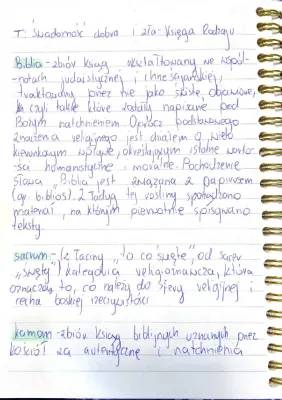 T: Świadomość dobra i zła - Księga Rodzaju
Biblia - zbiór ksiąg ukształtowany we wspól-
notach judaistycznej i chrześcijańskiej,
traktowany przez nie jako święte, objawione,
czyli takie które zostały napisane pod
Bożym natchnieniem. Oprócz podstawowego
znaczenia religijnego jest dziełem o wielo
kierunkowym wpływie, określającym istotne warto-
humanistyczne i moralne. Pochodzenie
słowa "Biblia" jest związana z papirusem
(gr. biblos). Z łodyg tej rośliny sporządzono
materiał, na którym pierwotnie spisywano
teksty.
sacrum - (z łaciny "to co święte", od sacer
"święty") kategoria religioznawcza, która
oznacza to, co należy do sfery religijnej i
boskiej rzeczywistości
kanon - zbiór ksiąg biblijnych uznanych przez
kościół za autentyczne i natchnienia